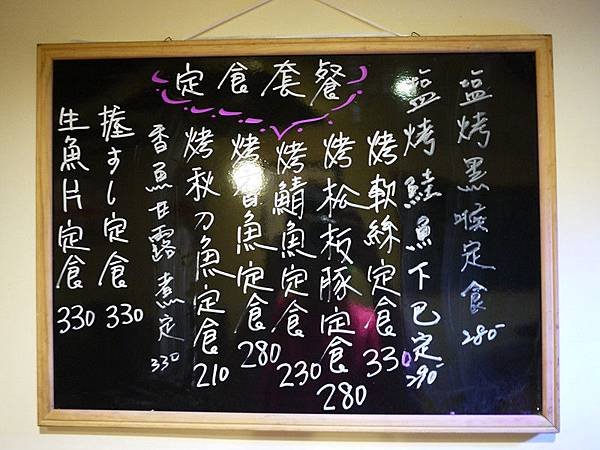 定食套餐
塩烤黑喉定食 280
塩烤鮭魚下巴定 290
烤軟絲定食 330
烤松板豚定食 280
烤鯖魚定食 230
烤香魚定食 280
烤秋刀魚定食 210
香魚甘露煮定 330
握すし定食 330
生魚片定食 330